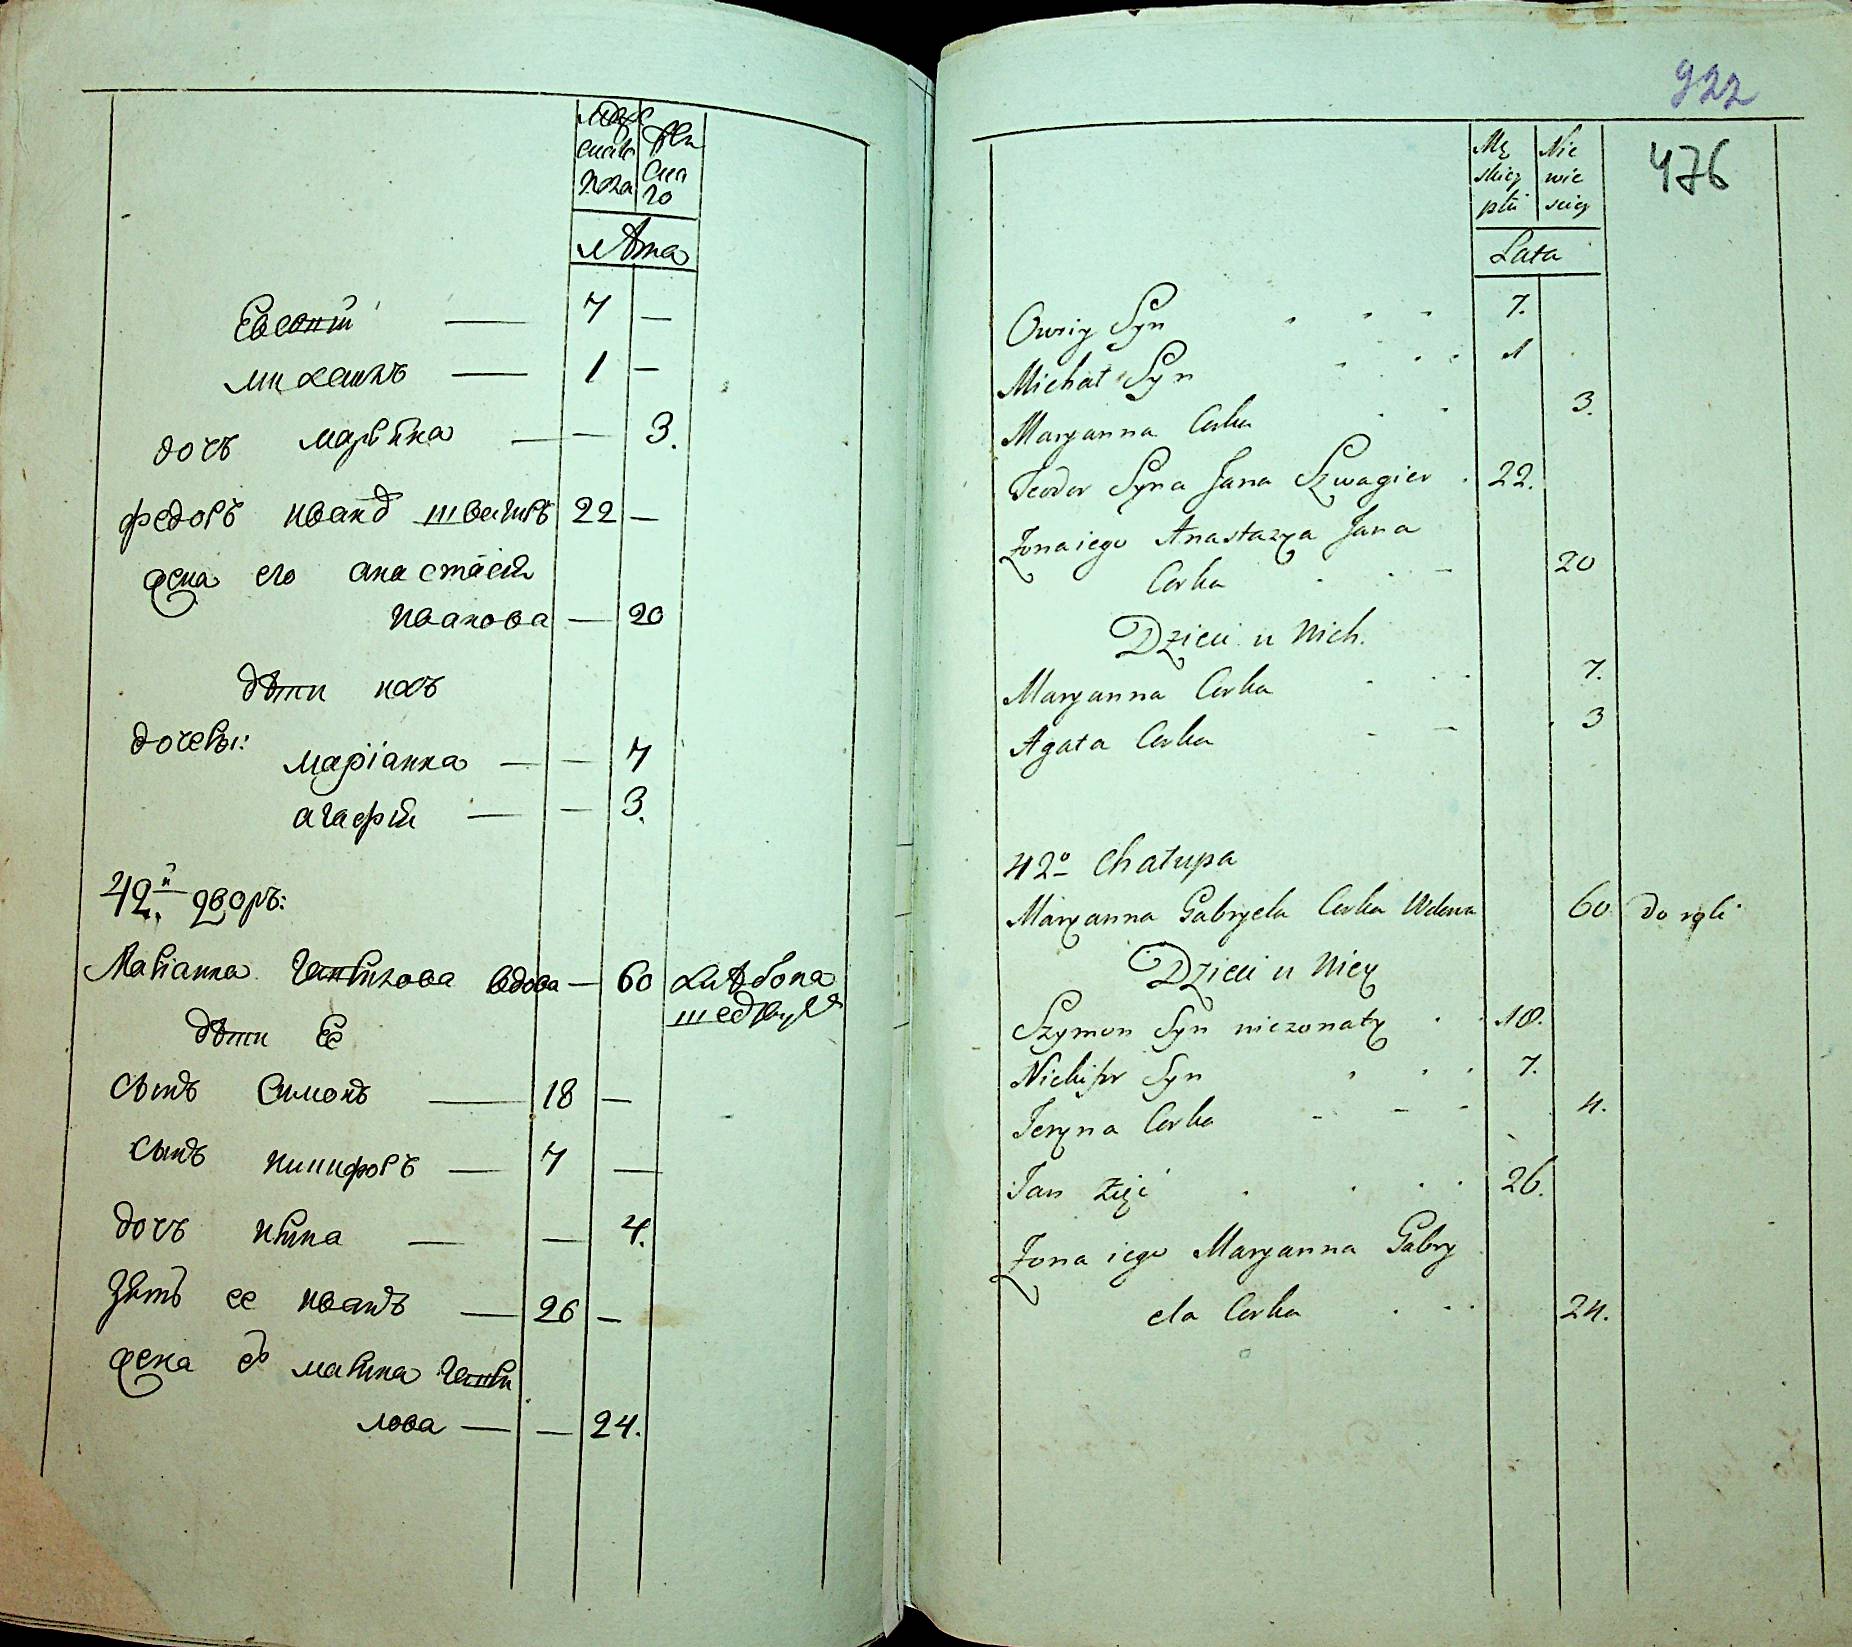 лѣта
Евсѣй — 7 —
михаилъ — 1 —
дочъ марьяна — — 3.
федоръ иванъ швагиръ 22 —
жена его анастасія
иванова — 20
дѣти ихъ
дочеры:
маріанна — — 7
агафія — — 3.
42.й дворъ:
Маріанна гаврилова вдова — 60 хлѣбопа
шедруѣ
дѣти Ее
сынъ Симонъ — 18 —
сынъ никифоръ — 7 —
дочъ — — 4.
зять ее иванъ — 26 —
жена ево мариана гаври
лова — — 24.
922
476
Mę Nie
skiey wie
płci sciey
Lata
Owsiy Syn 7.
Michał Syn 1
Maryanna Corka 3.
Teodor Syna Jana Szwagier 22.
Zona iego Anastazya Jana
Corka 20
Dzieci u Nich.
Maryanna Corka 7.
Agata Corka 3
42º Chałupa
Maryanna Gabryela Corka Wdowa 60 do roli
Dzieci u Niey
Szymon Syn niezonaty 18.
Nichifor Syn 7.
Jeryna Corka 4.
Jan Zięć 26.
Zona iego Maryanna Gabry
ela Corka 24.